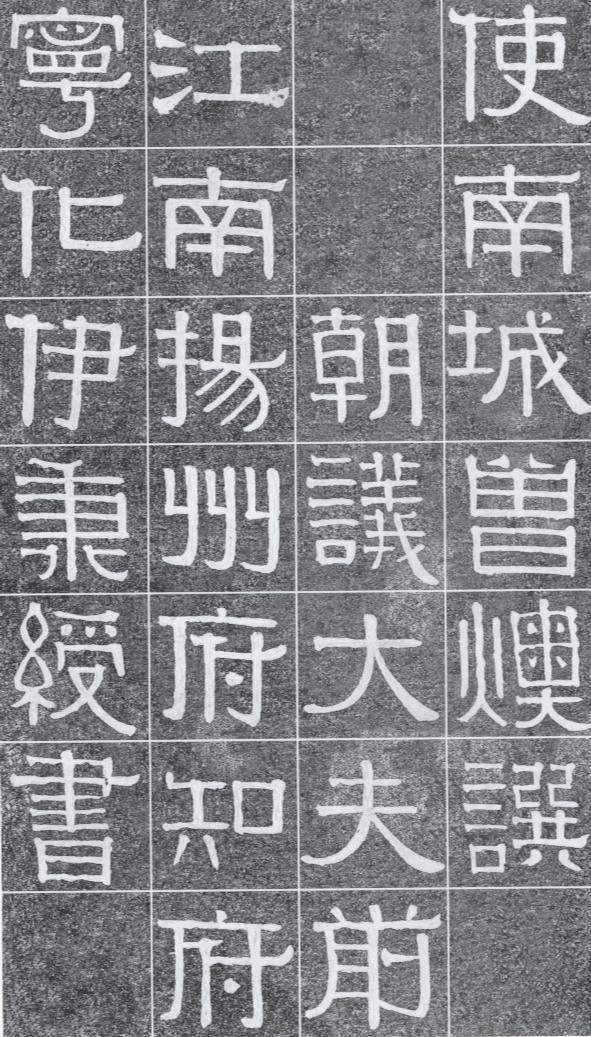 使南城曾燠譔
朝議大夫前
江南揚州府知府
寧化伊秉綬書